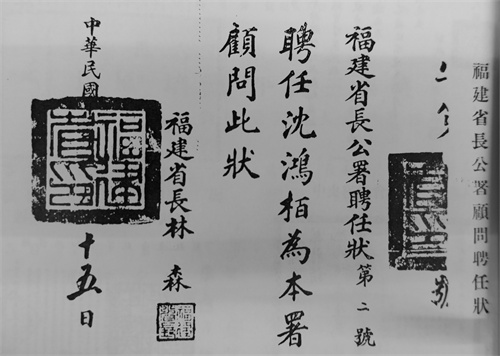 福建省長公署顧問聘任狀
福建省長公署聘任狀第二號
聘任沈鴻栢為本署
顧問此狀
福建省長林森
中華民國
福建省印
十五日